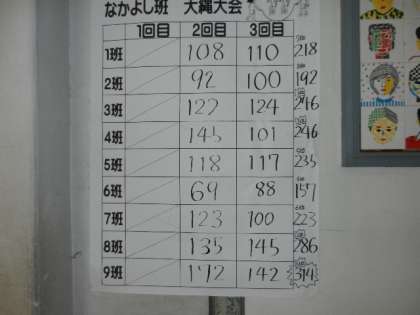 なかよし班 大縄大会
1回目 2回目 3回目
1班 108 110 218
2班 92 100 192
3班 122 124 246
4班 145 101 246
5班 118 117 235
6班 69 88 157
7班 123 100 223
8班 135 145 286
9班 172 142 314